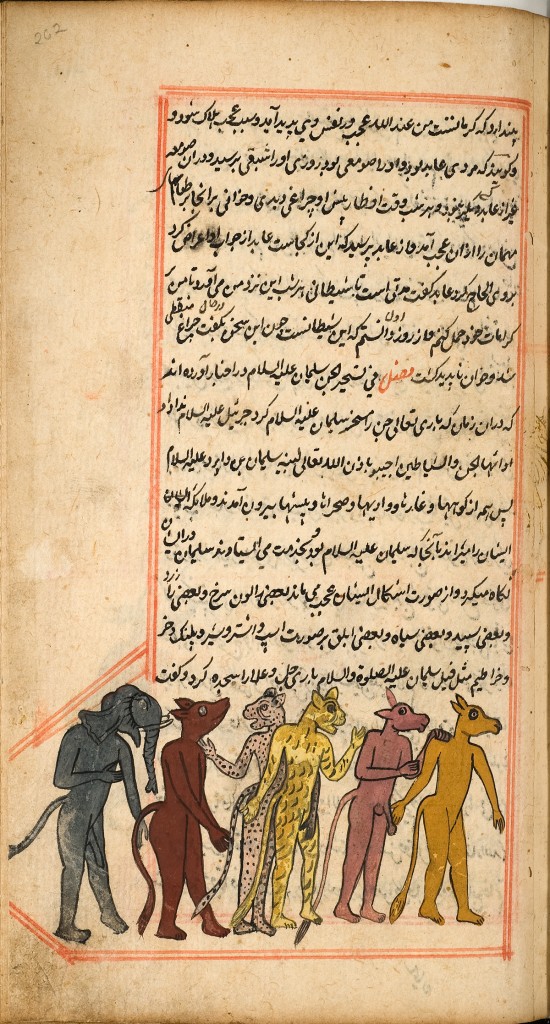 202
پندارد که کرمانست من عند الله عجب در نفس وی پدید آمد و سبب عجب هلاک شود و
و کویند که مردی عابد بود و او در صومعی بود روزی اورا شبقی برسید و دران صومعه
غیر از عابد و شب وقت افطار پیش او چراغی دیدی و خوانی برانجا بر طعام
مهمان را ازان عجب آمد و از عابد پرسید که این از کجاست عابد از جواب او اعراض کرد
بروی الحاح کرد عابد کفت مدتی است تا شیطانی هر شب این نزد من می آرد تا من
کرامات خود حمل کنم و از روز اول دانستم که این شیطانست چون این سخن بکفت چراغ
شد و خوان ناپدید کشت فصل فی تسخیر الجن سلیمان علیه السلام در اخبار آورده اند
که دران زمان که باری تعالی جن را مسخر سلیمان علیه السلام کرد جبرئیل علیه السلام ندا داد
ایتها الجن والشیاطین اجیبو باذن الله تعالی لنبیه سلیمان بن داود علیه السلام
پس همه از کوهها و غارها و وادیها و صحراها و بیشها بیرون آمدند و ملائکه
ایشان را میراند تا آنجا که سلیمان علیه السلام بود و بخدمت می ایستادند سلیمان در ایشان
نکاه میکرد و از صورت اشکال ایشان عجب می ماند بعضی را لون سرخ و بعضی زرد
و بعضی سپید و بعضی سیاه و بعضی ابلق بر صورت اسپ و اشتر و شیر و پلنک و خر
و خراطیم مثل فیل سلیمان علیه الصلوة والسلام باری جل و علا را سجده کرد و کفت